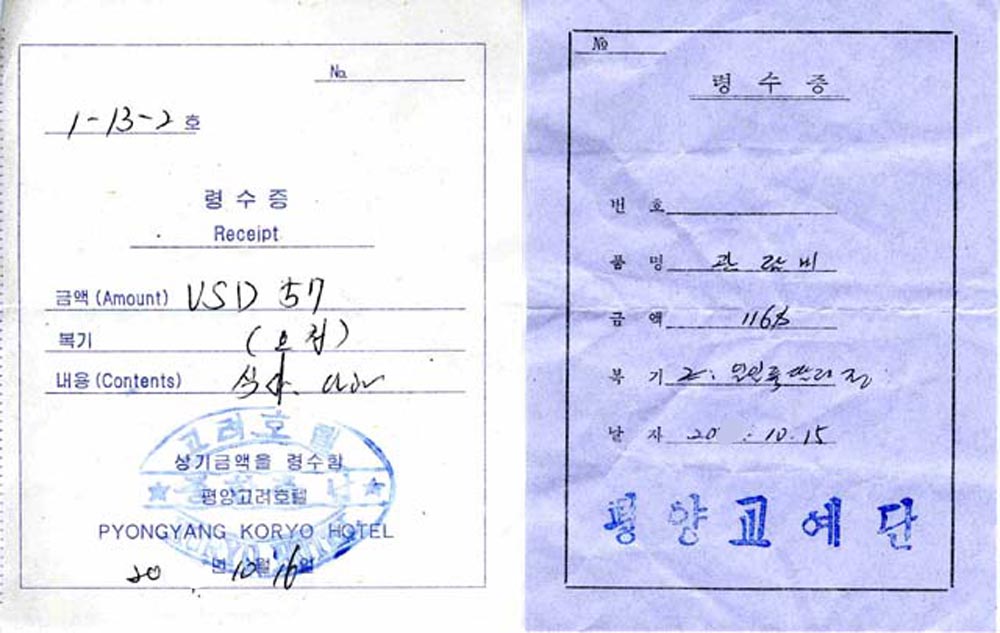 No.
1-13-2 호
령수증
Receipt
금액 (Amount) USD 57
복기
내용 (Contents)
고려호텔
상기금액을 령수함
평양고려호텔
PYONGYANG KORYO HOTEL
20 년 10월 16일
№
령 수 증
번 호
품 명 관 람 비
금 액 116$
복 기
날 자 20 . 10. 15
평양교예단